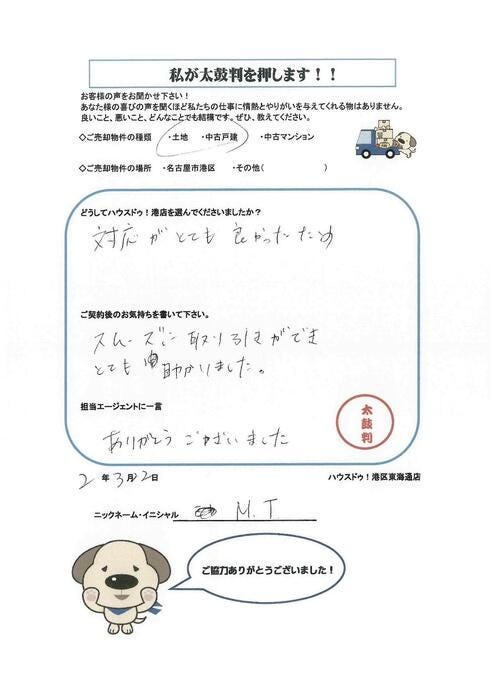 私が太鼓判を押します！！
お客様の声をお聞かせ下さい！
あなた様の喜びの声を聞くほど私たちの仕事に情熱とやりがいを与えてくれる物はありません。
良いこと、悪いこと、どんなことでも結構です。ぜひ、教えてください。
◇ご売却物件の種類　・土地　・中古戸建　・中古マンション
◇ご売却物件の場所　・名古屋市港区　・その他(　　　　　)
どうしてハウスドゥ！港店を選んでくださいましたか？
対応がとても良かったため
ご契約後のお気持ちを書いて下さい。
スムーズに取り引きができ
とても助かりました。
担当エージェントに一言
太鼓判
ありがとうございました
2年3月2日
ハウスドゥ！港区東海通店
ニックネーム・イニシャル　M.T
ご協力ありがとうございました！